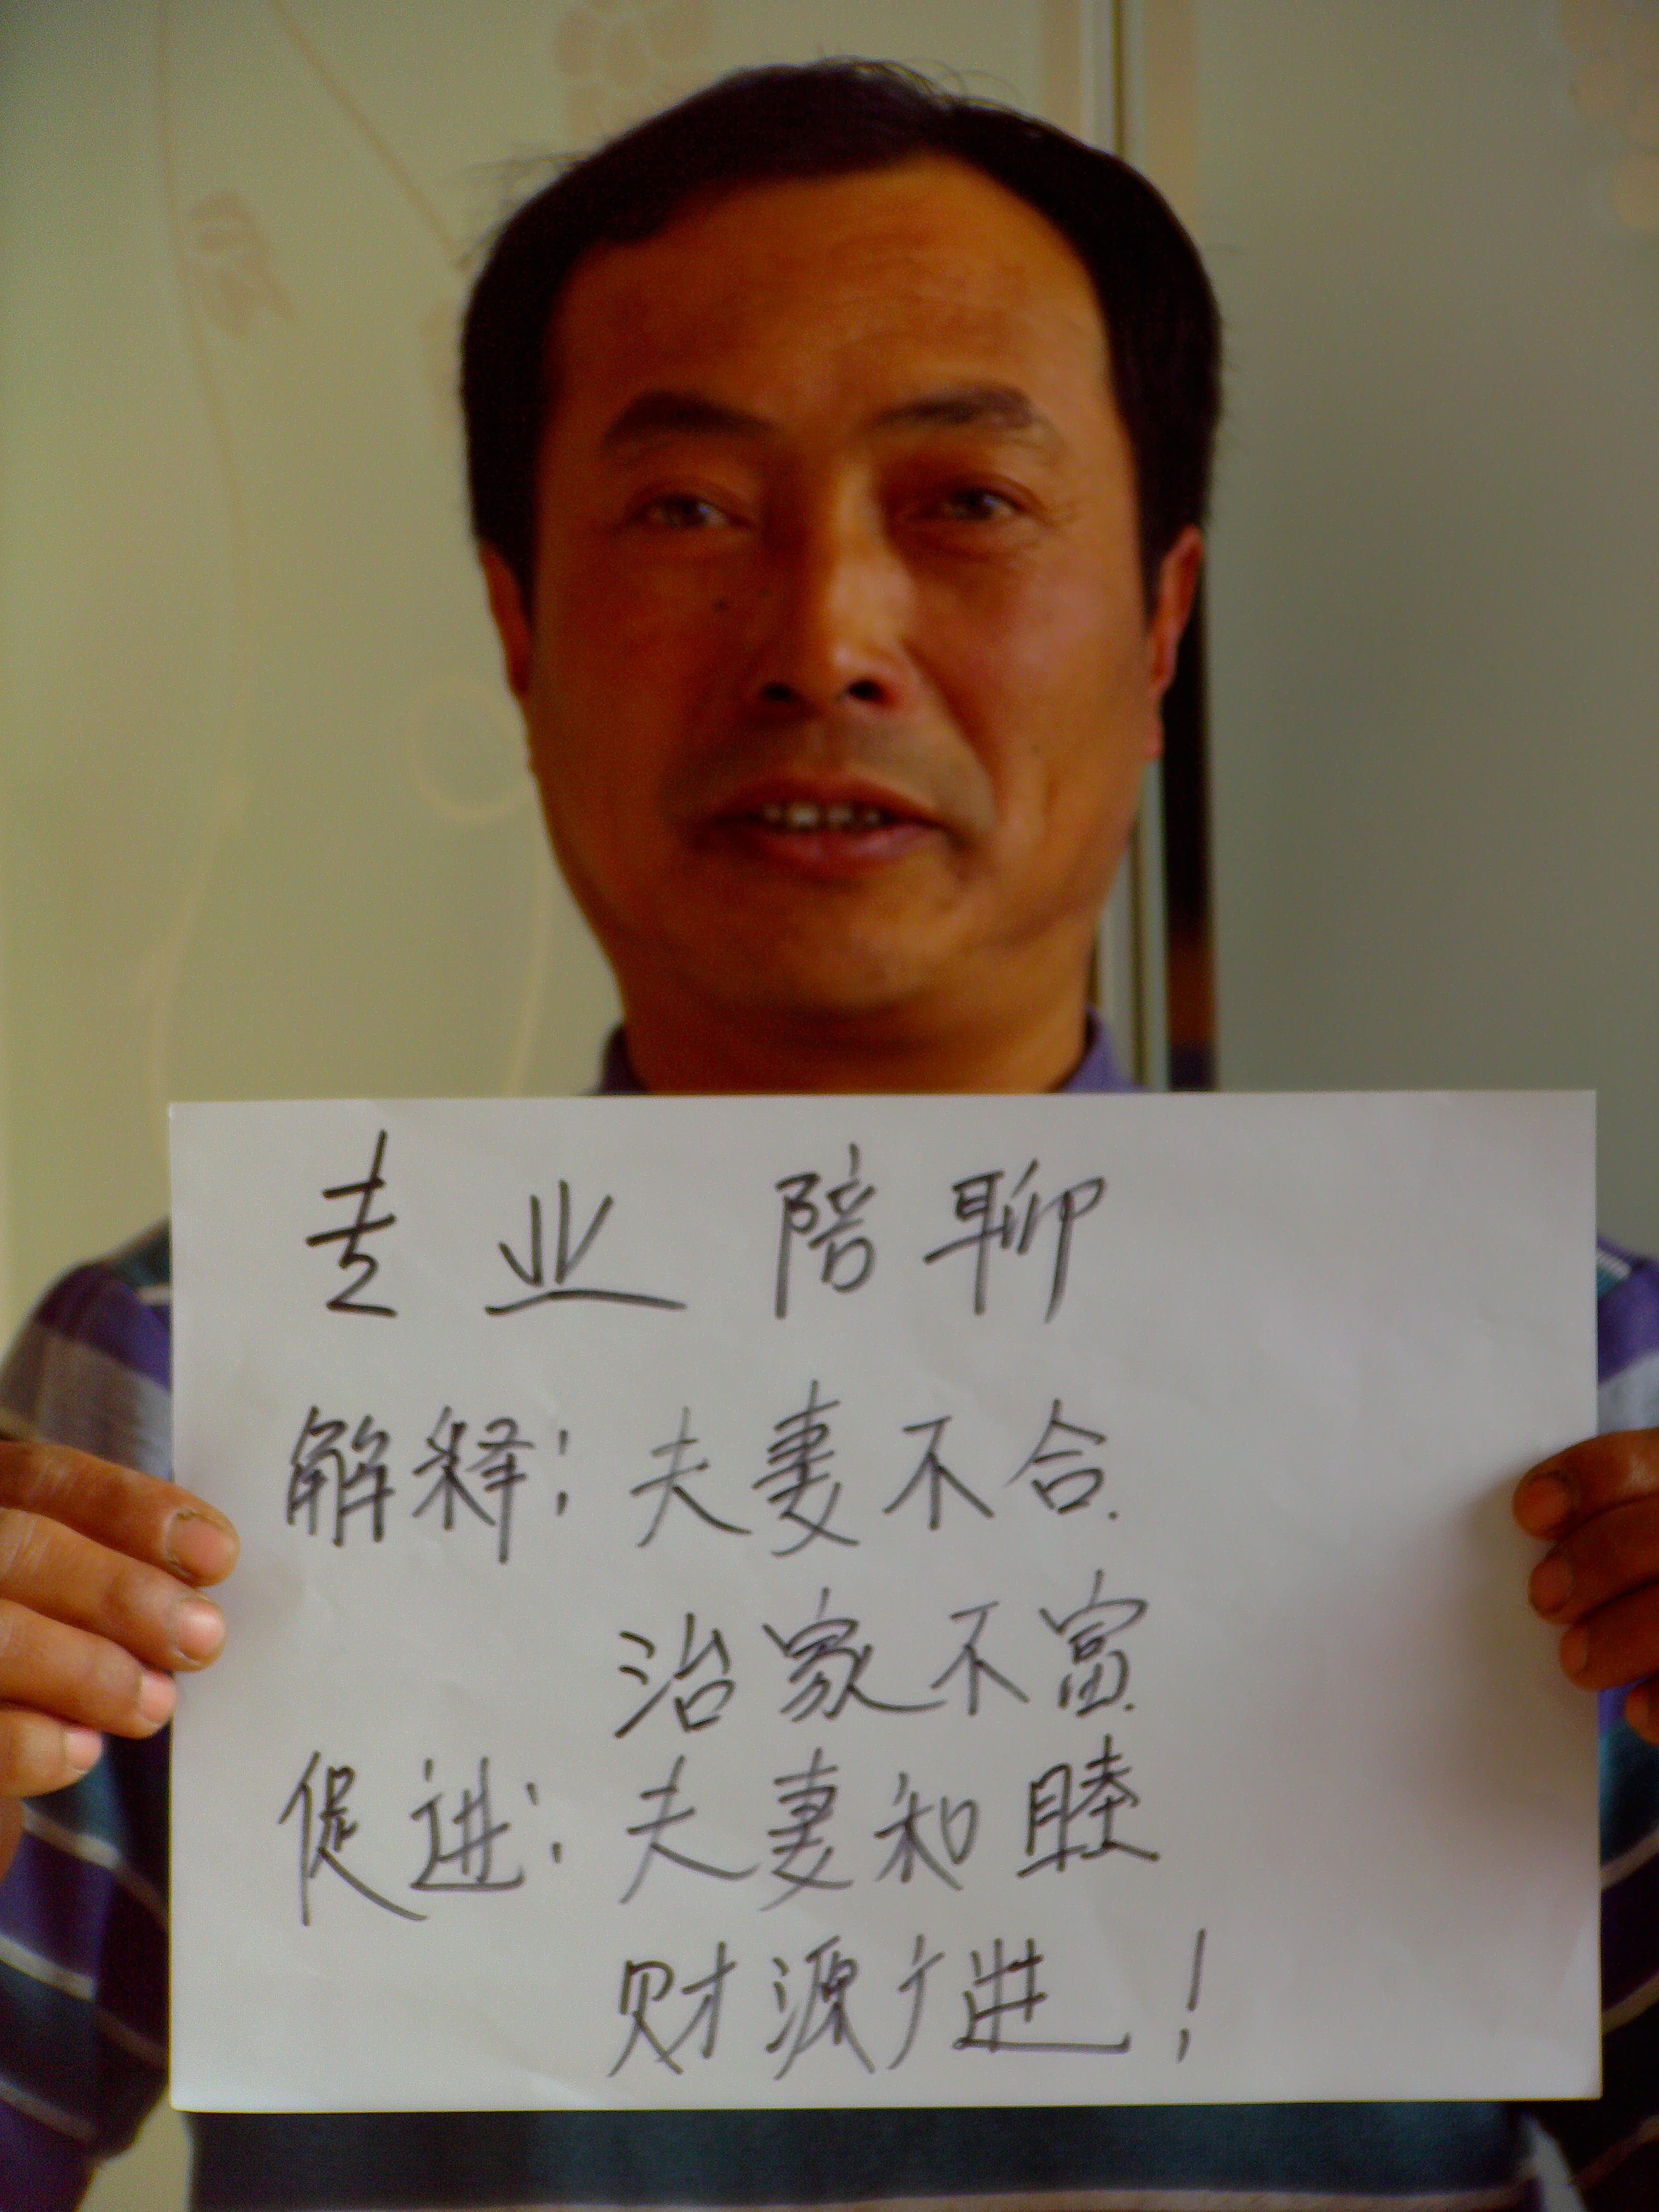 专业陪聊
解释：夫妻不合.
治家不富.
促进：夫妻和睦
财源广进！